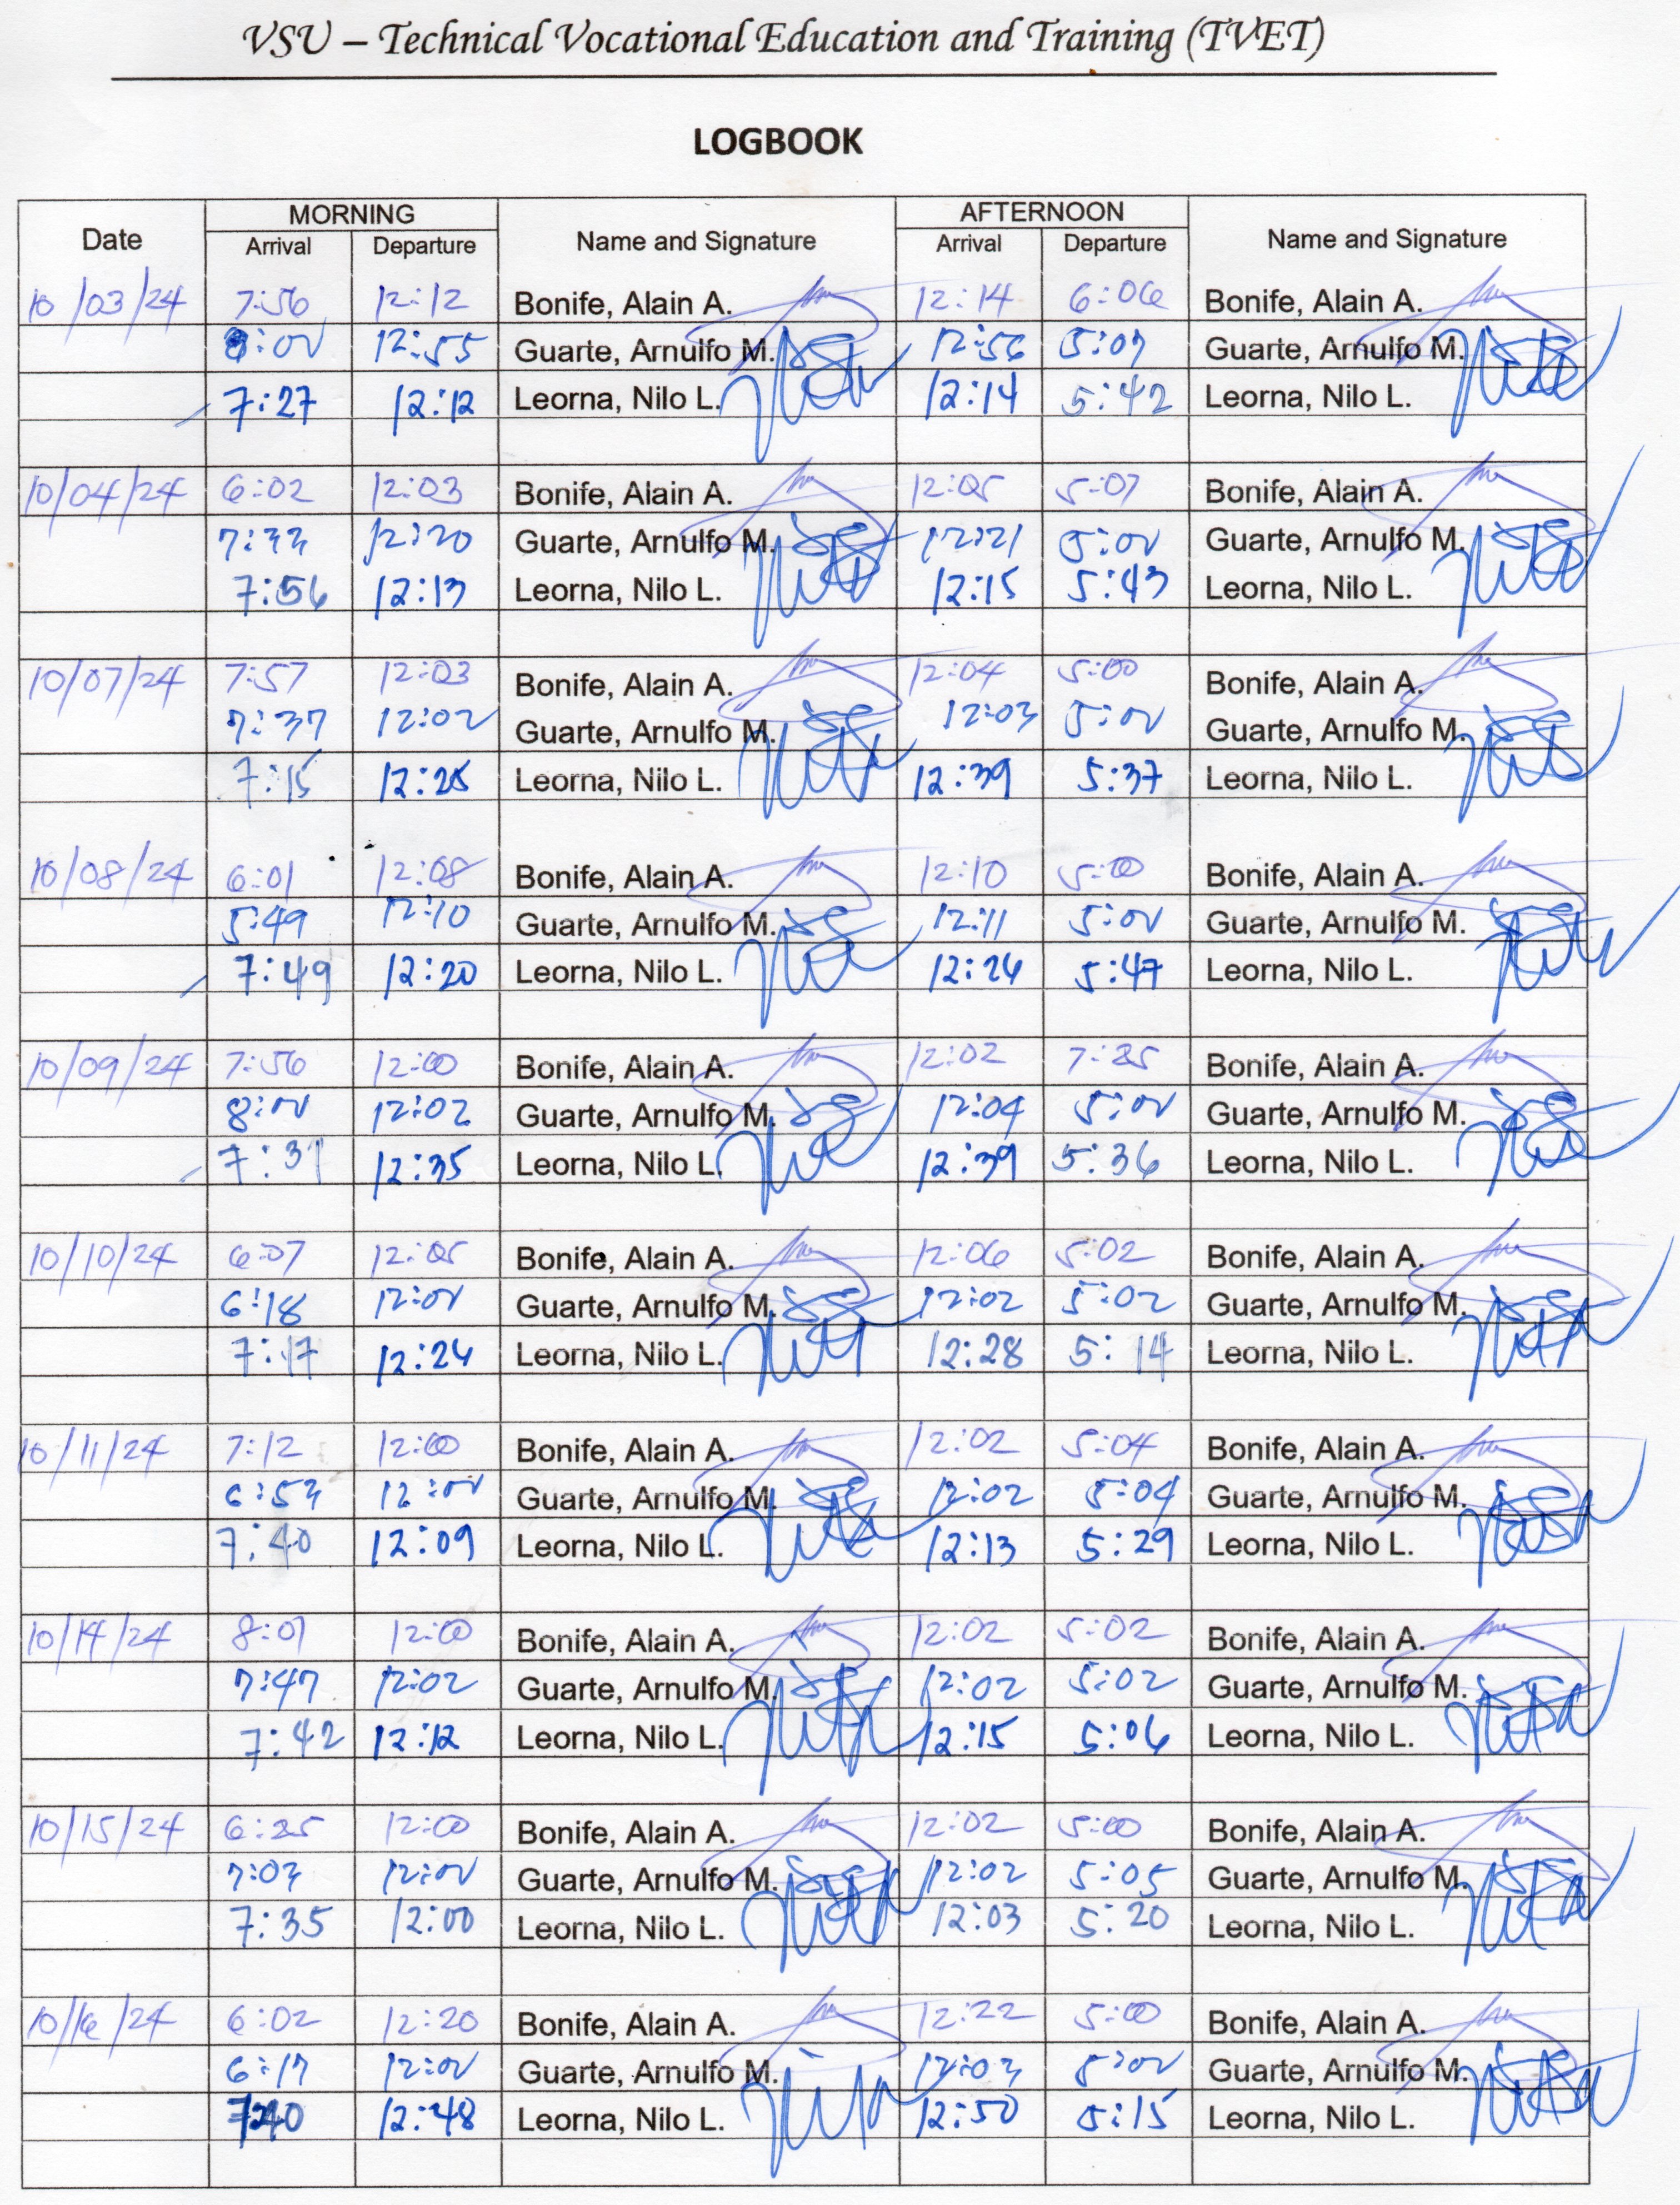 VSU – Technical Vocational Education and Training (TVET)
LOGBOOK
Date MORNING Name and Signature AFTERNOON Name and Signature
Arrival Departure Arrival Departure
10/03/24 7:56 12:12 Bonife, Alain A. 12:14 6:06 Bonife, Alain A.
12:55 Guarte, Arnulfo M. 12:56 5:07 Guarte, Arnulfo M.
7:27 12:12 Leorna, Nilo L. 12:14 5:42 Leorna, Nilo L.
10/04/24 6:02 12:03 Bonife, Alain A. 12:05 5:07 Bonife, Alain A.
7:33 12:20 Guarte, Arnulfo M. 12:21 5:00 Guarte, Arnulfo M.
7:56 12:13 Leorna, Nilo L. 12:15 5:43 Leorna, Nilo L.
10/07/24 7:57 12:03 Bonife, Alain A. 12:04 5:00 Bonife, Alain A.
7:37 12:02 Guarte, Arnulfo M. 12:03 5:00 Guarte, Arnulfo M.
7:15 12:25 Leorna, Nilo L. 12:39 5:37 Leorna, Nilo L.
10/08/24 6:01 12:08 Bonife, Alain A. 12:10 5:00 Bonife, Alain A.
5:49 12:10 Guarte, Arnulfo M. 12:11 5:00 Guarte, Arnulfo M.
7:49 12:20 Leorna, Nilo L. 12:26 5:47 Leorna, Nilo L.
10/09/24 7:56 12:00 Bonife, Alain A. 12:02 7:25 Bonife, Alain A.
8:00 12:02 Guarte, Arnulfo M. 12:04 5:00 Guarte, Arnulfo M.
7:31 12:35 Leorna, Nilo L. 12:39 5:36 Leorna, Nilo L.
10/10/24 6:07 12:05 Bonife, Alain A. 12:06 5:02 Bonife, Alain A.
6:18 12:00 Guarte, Arnulfo M. 12:02 5:02 Guarte, Arnulfo M.
7:17 12:26 Leorna, Nilo L. 12:28 5:14 Leorna, Nilo L.
10/11/24 7:12 12:00 Bonife, Alain A. 12:02 5:04 Bonife, Alain A.
6:53 12:00 Guarte, Arnulfo M. 12:02 5:04 Guarte, Arnulfo M.
7:40 12:09 Leorna, Nilo L. 12:13 5:29 Leorna, Nilo L.
10/14/24 8:01 12:00 Bonife, Alain A. 12:02 5:02 Bonife, Alain A.
7:47 12:02 Guarte, Arnulfo M. 12:02 5:02 Guarte, Arnulfo M.
7:42 12:12 Leorna, Nilo L. 12:15 5:06 Leorna, Nilo L.
10/15/24 6:25 12:00 Bonife, Alain A. 12:02 5:00 Bonife, Alain A.
7:03 12:00 Guarte, Arnulfo M. 12:02 5:05 Guarte, Arnulfo M.
7:35 12:00 Leorna, Nilo L. 12:03 5:20 Leorna, Nilo L.
10/16/24 6:02 12:20 Bonife, Alain A. 12:22 5:00 Bonife, Alain A.
6:17 12:00 Guarte, Arnulfo M. 12:03 5:00 Guarte, Arnulfo M.
7:40 12:48 Leorna, Nilo L. 12:50 5:15 Leorna, Nilo L.